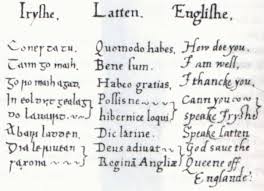 Iryshe, Latten, Englishe,
Coner ta tu, Quomodo habes, How doe you,
Taim go maih, Bene sum, I am well,
Go ro maih agat, Habeo gratias, I thancke you,
In eolut gealag Possis ne Cann you
do lawairt, hibernice loqui speake Iryshe
Abair laiden, Dic latine, Speake latten
Dia le riuean Deus adiuat God saue the
saxona Regina Angliæ Queene off
Englande